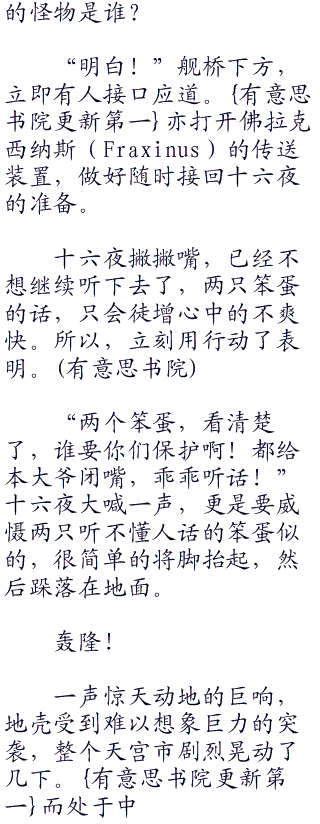 的怪物是谁？
“明白！”舰桥下方，
立即有人接口应道。{有意思
书院更新第一}亦打开佛拉克
西纳斯（Fraxinus）的传送
装置，做好随时接回十六夜
的准备。
十六夜撇撇嘴，已经不
想继续听下去了，两只笨蛋
的话，只会徒增心中的不爽
快。所以，立刻用行动了表
明。(有意思书院)
“两个笨蛋，看清楚
了，谁要你们保护啊！都给
本大爷闭嘴，乖乖听话！”
十六夜大喊一声，更是要威
慑两只听不懂人话的笨蛋似
的，很简单的将脚抬起，然
后跺落在地面。
轰隆！
一声惊天动地的巨响，
地壳受到难以想象巨力的突
袭，整个天宫市剧烈晃动了
几下。{有意思书院更新第
一}而处于中